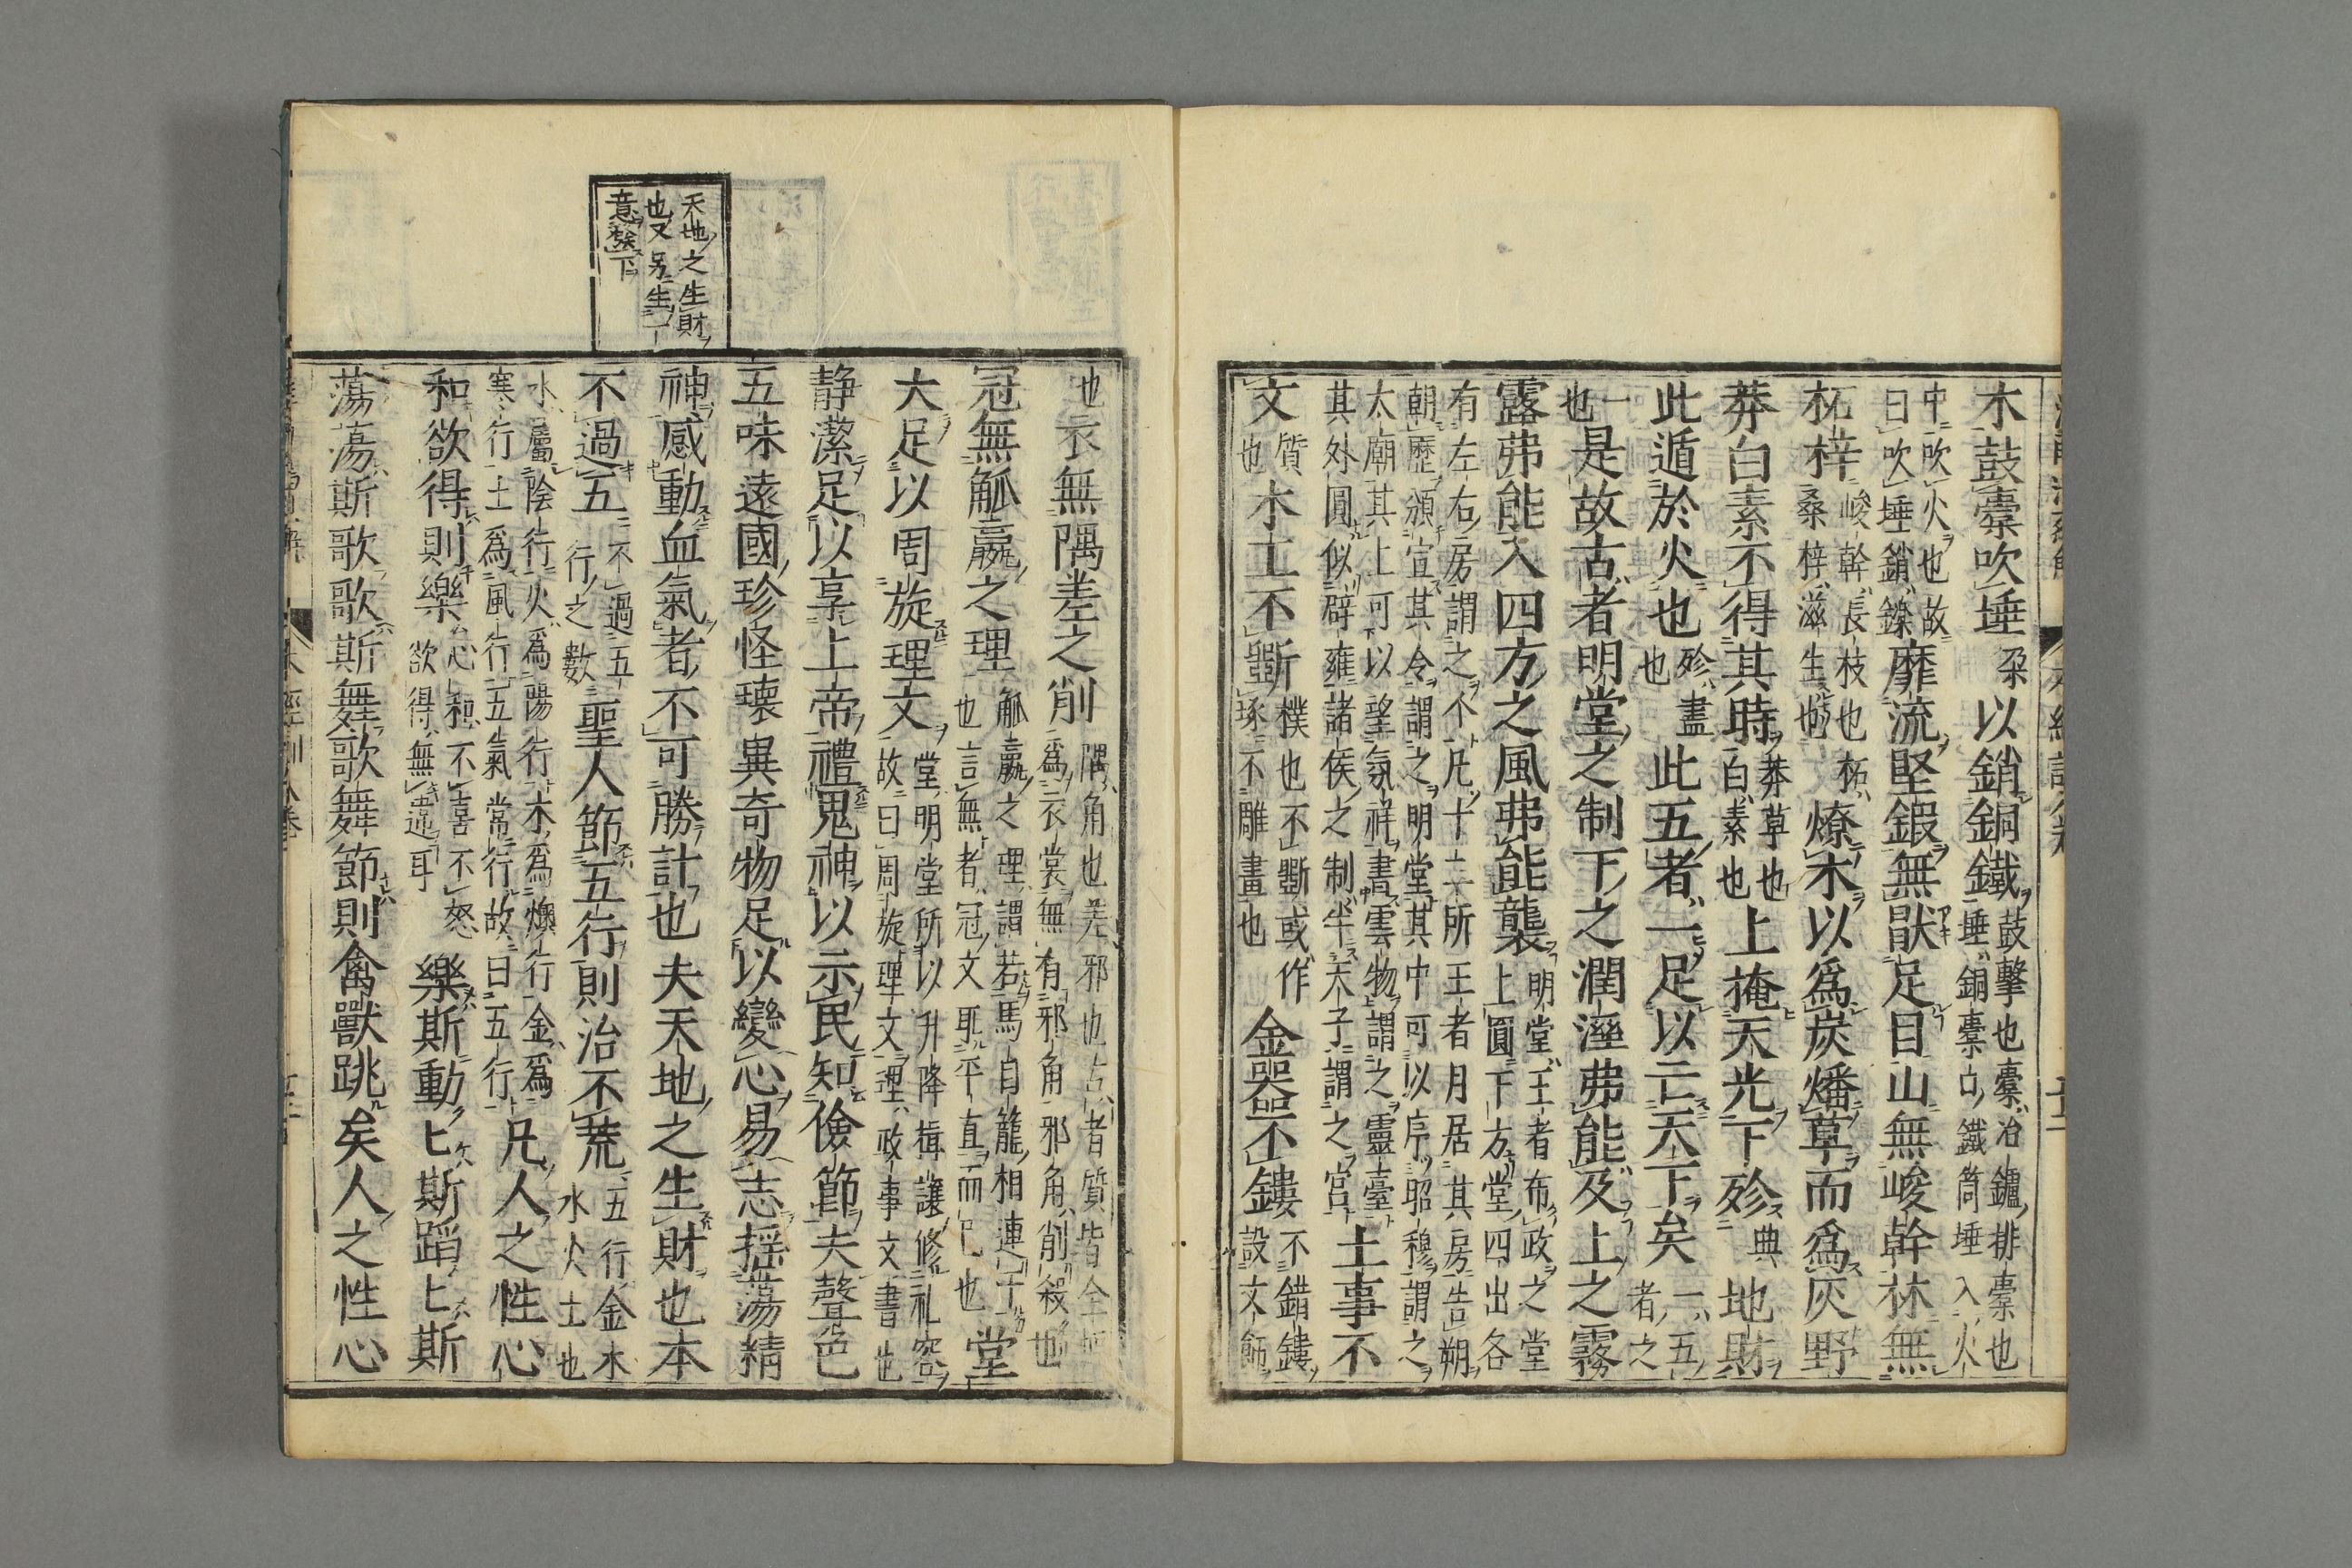 木鼓橐吹埵朶以銷銅鐵鼓擊也橐冶鑪排橐也埵銅橐口鐵筒埵入火
中吹火也故曰吹埵銷鑠靡流堅鍛無猒足目山無峻幹林無
柘梓峻幹長枝也柘桑梓滋生也燎木以爲炭燔草而爲灰野
莽白素不得其時莽草也白素也上掩天光下殄典地財
此遁於火也殄盡也此五者一足以亡天下矣一五者之
一也是故古者明堂之制下之潤溼弗能及上之霧
露弗能入四方之風弗能襲明堂王者布政之堂上圓下方堂四出各
有左右房謂之个凡十二所王者月居其房告朔朝歷頒宣其令謂之明堂其中可以序昭穆謂之
太廟其上可以望氛祥書雲物謂之靈臺其外圓似辟雍諸侯之制半天子謂之宮土事不
文質也木工不斲樸也不斲或作琢不雕畫也金器不鏤不錯鏤設文飾
也衣無隅差之削隅角也差邪也古者質皆全爲衣裳無有邪角邪角削殺也
冠無觚蠃之理觚蠃之理謂若馬目籠相連干也言無者冠文耴平直而已也堂
大足以周旋理文堂明堂所以升降揖讓修礼容故曰周旋理文理政事文書也
静潔足以享上帝禮鬼神以示民知儉節夫聲色
五味遠國珍怪瓌異奇物足以變心易志揺蕩精
神感動血氣者不可勝計也夫天地之生財也本
不過五不過五行之數聖人節五行則治不荒五行金木水火土也
水屬陰行火爲陽行木爲燠行金爲寒行土爲風行五氣常行故曰五行凡人之性心
和欲得則樂心和不喜不怒欲得無違耳樂斯動ヒ斯蹈ヒ斯
蕩蕩斯歌歌斯舞歌舞節則禽獸跳矣人之性心
天地之生財
也又另生一
意發下